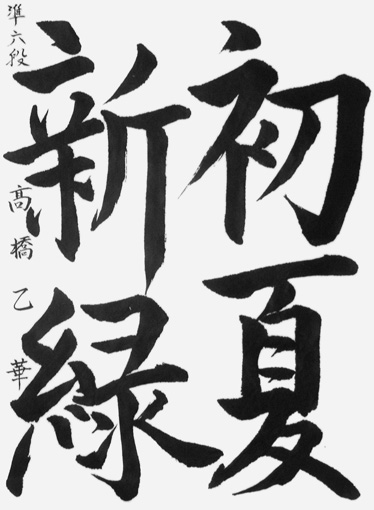 初夏
新緑
準六段 高橋乙華